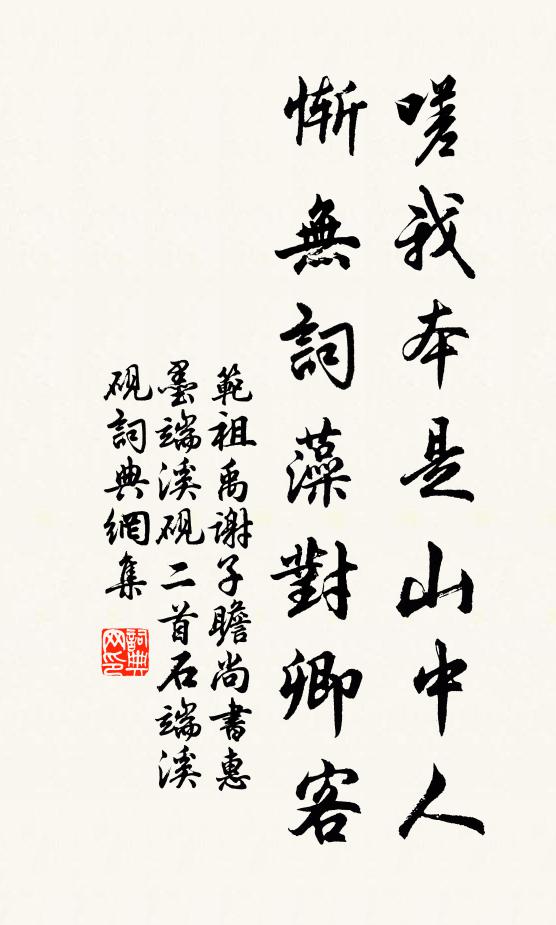 嗟我本是山中人
慚無詞藻對卿客
範祖禹謝子瞻尚書惠
墨端溪硯二首石端溪
硯詞典網集
詞典网印